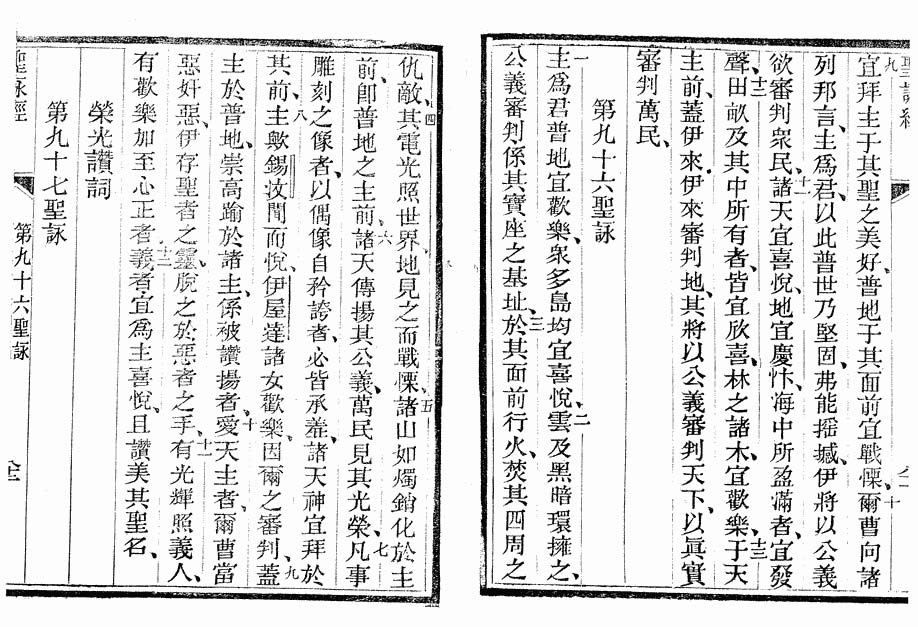 聖詠經
九
宜拜主于其聖之美好、普地于其面前宜戰慄、爾曹向諸
十
列邦言、主爲君、以此普世乃堅固、弗能搖撼、伊將以公義
審判衆民、十一諸天宜喜悅、地宜慶忭、海中所盈滿者、宜發
聲、十二田畝及其中所有者、皆宜欣喜、林之諸木、宜歡樂、十三于天
主前、蓋伊來、伊來審判地、其將以公義審判天下、以眞實
審判萬民、
第九十六聖詠
一主爲君、普地宜歡樂、衆多島均宜喜悅、二雲及黑暗環擁之、
公義審判、係其寶座之基址、三於其面前行火、焚其四周之
仇敵、四其電光照世界、地見之而戰慄、五諸山如燭銷化於主
前、卽普地之主前、六諸天傳揚其公義、萬民見其光榮、七凡事
雕刻之像者、以偶像自矜誇者、必皆承羞、諸天神宜拜於
其前、八主歟、錫汝聞而悅、伊屋達諸女歡樂、因爾之審判、九蓋
主於普地、崇高踰於諸主、係被讚揚者、十愛天主者、爾曹當
惡奸惡、伊存聖者之靈、脫之於惡者之手、十一有光輝照義人、
十二有歡樂加至心正者、義者、宜爲主喜悅、且讚美其聖名、
榮光讚詞
第九十七聖詠
聖詠經
第九十六聖詠